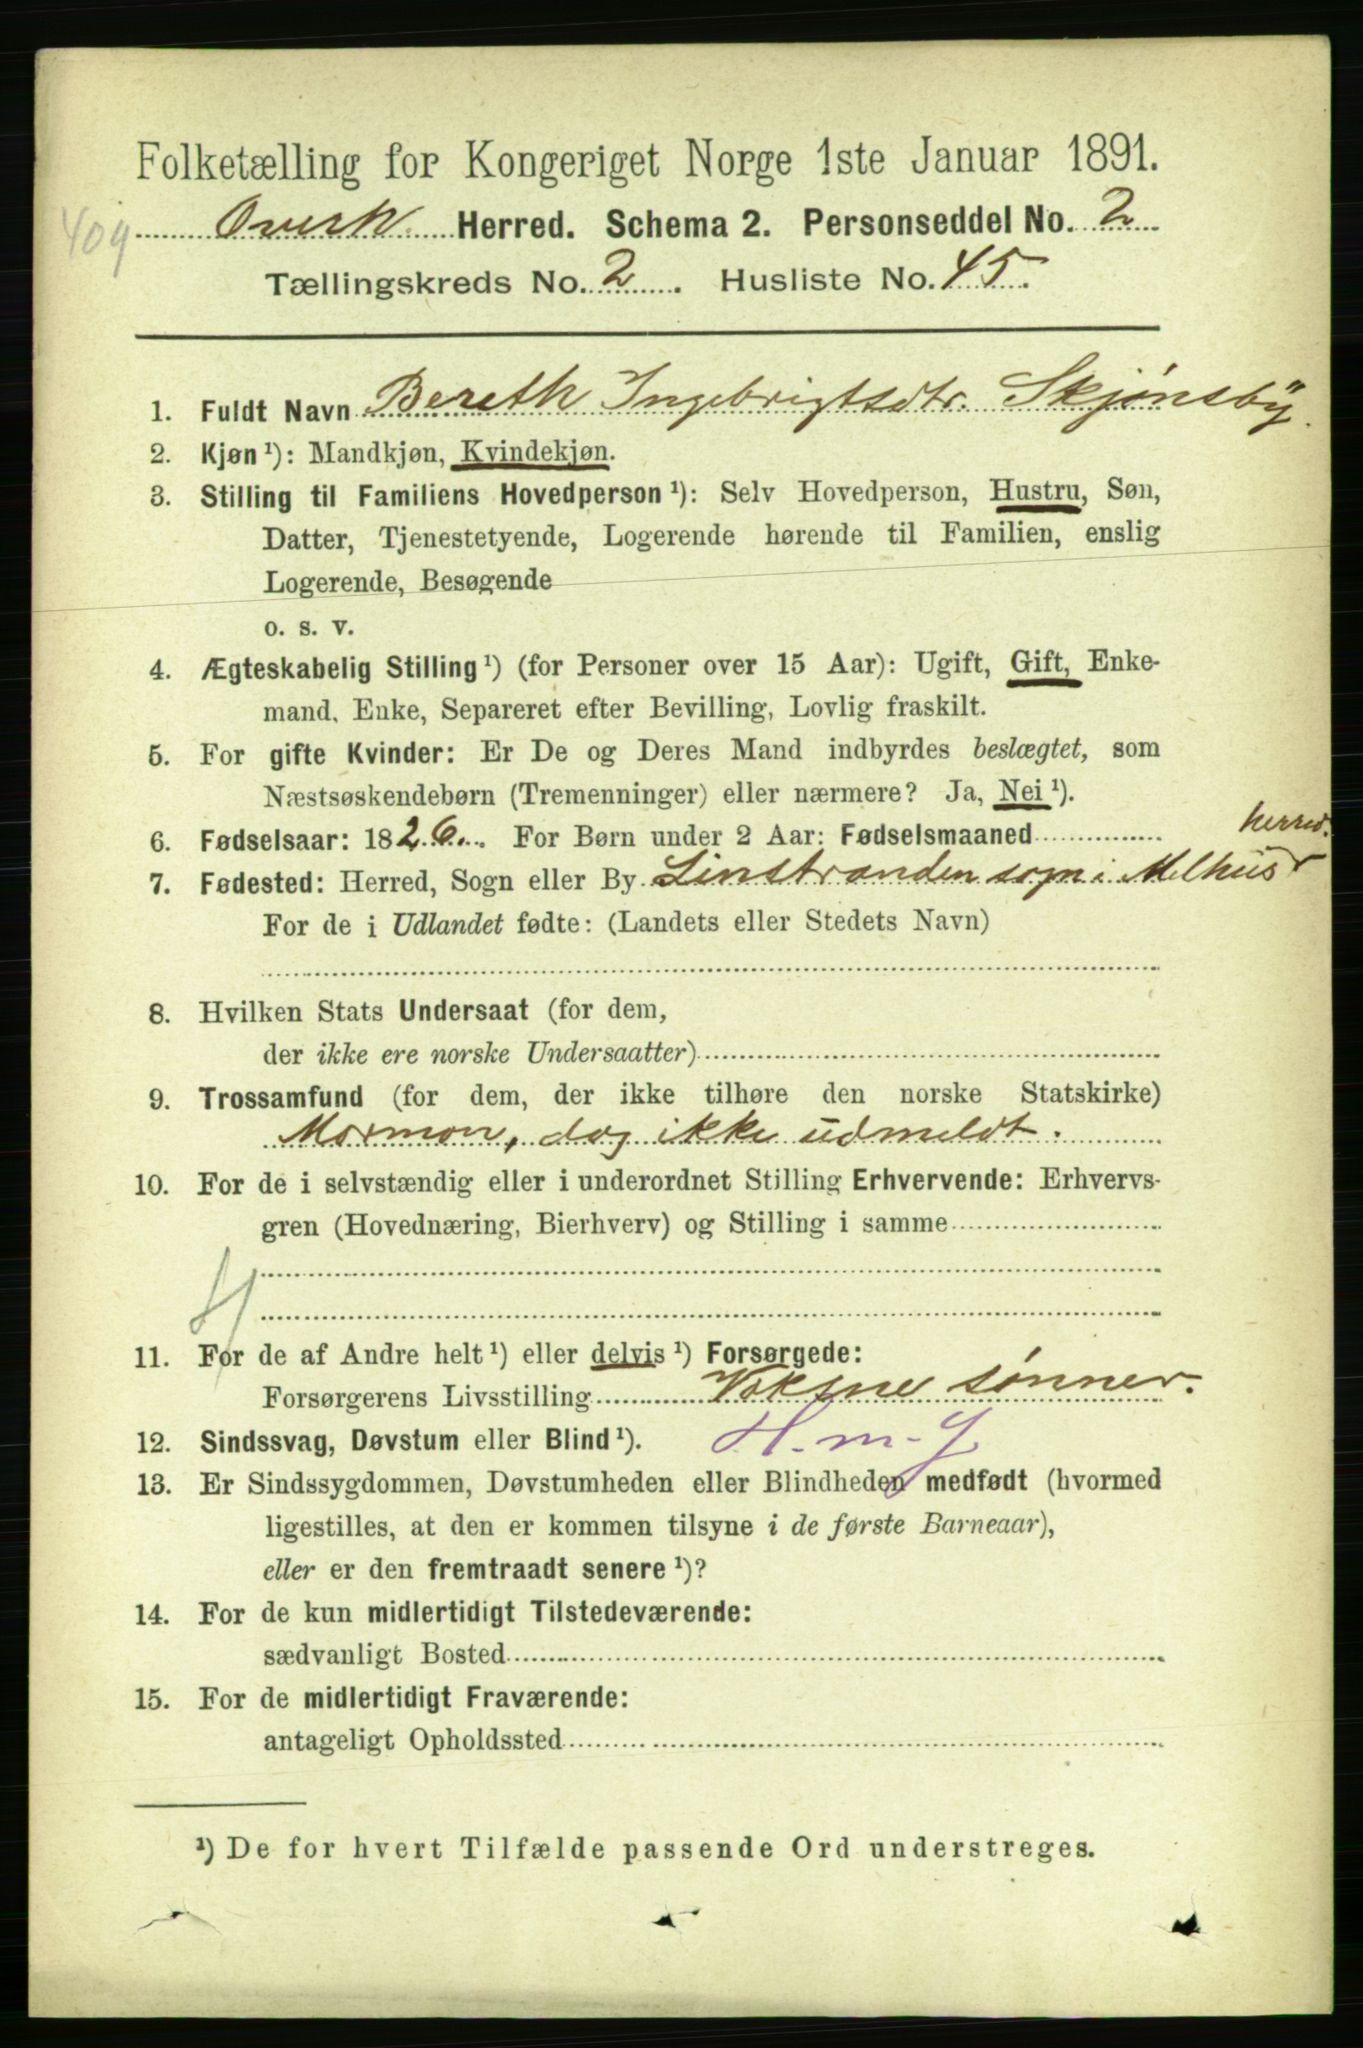 Folketælling for Kongeriget Norge 1ste Januar 1891.
409
Overh. Herred. Schema 2. Personseddel No. 2
Tællingskreds No. 2. Husliste No. 45.
1. Fuldt Navn Bereth Ingebrigtsdtr. Skjønsby.
2. Kjøn ¹): Mandkjøn, Kvindekjøn.
3. Stilling til Familiens Hovedperson ¹): Selv Hovedperson, Hustru, Søn,
Datter, Tjenestetyende, Logerende hørende til Familien, enslig
Logerende, Besøgende
o. s. v.
4. Ægteskabelig Stilling ¹) (for Personer over 15 Aar): Ugift, Gift, Enke-
mand, Enke, Separeret efter Bevilling, Lovlig fraskilt.
5. For gifte Kvinder: Er De og Deres Mand indbyrdes beslægtet, som
Næstsøskendebørn (Tremenninger) eller nærmere? Ja, Nei ¹).
6. Fødselsaar: 1826. For Børn under 2 Aar: Fødselsmaaned
herred.
7. Fødested: Herred, Sogn eller By Linstranden sogn i Melhus
For de i Udlandet fødte: (Landets eller Stedets Navn)
8. Hvilken Stats Undersaat (for dem,
der ikke ere norske Undersaatter)
9. Trossamfund (for dem, der ikke tilhøre den norske Statskirke)
Mormon, dog ikke udmeldt.
10. For de i selvstændig eller i underordnet Stilling Erhvervende: Erhvervs-
gren (Hovednæring, Bierhverv) og Stilling i samme
11. For de af Andre helt ¹) eller delvis ¹) Forsørgede:
Forsørgerens Livsstilling Voksne sønner.
12. Sindssvag, Døvstum eller Blind ¹). H. m. J
13. Er Sindssygdommen, Døvstumheden eller Blindheden medfødt (hvormed
ligestilles, at den er kommen tilsyne i de første Barneaar),
eller er den fremtraadt senere ¹)?
14. For de kun midlertidigt Tilstedeværende:
sædvanligt Bosted
15. For de midlertidigt Fraværende:
antageligt Opholdssted
¹) De for hvert Tilfælde passende Ord understreges.